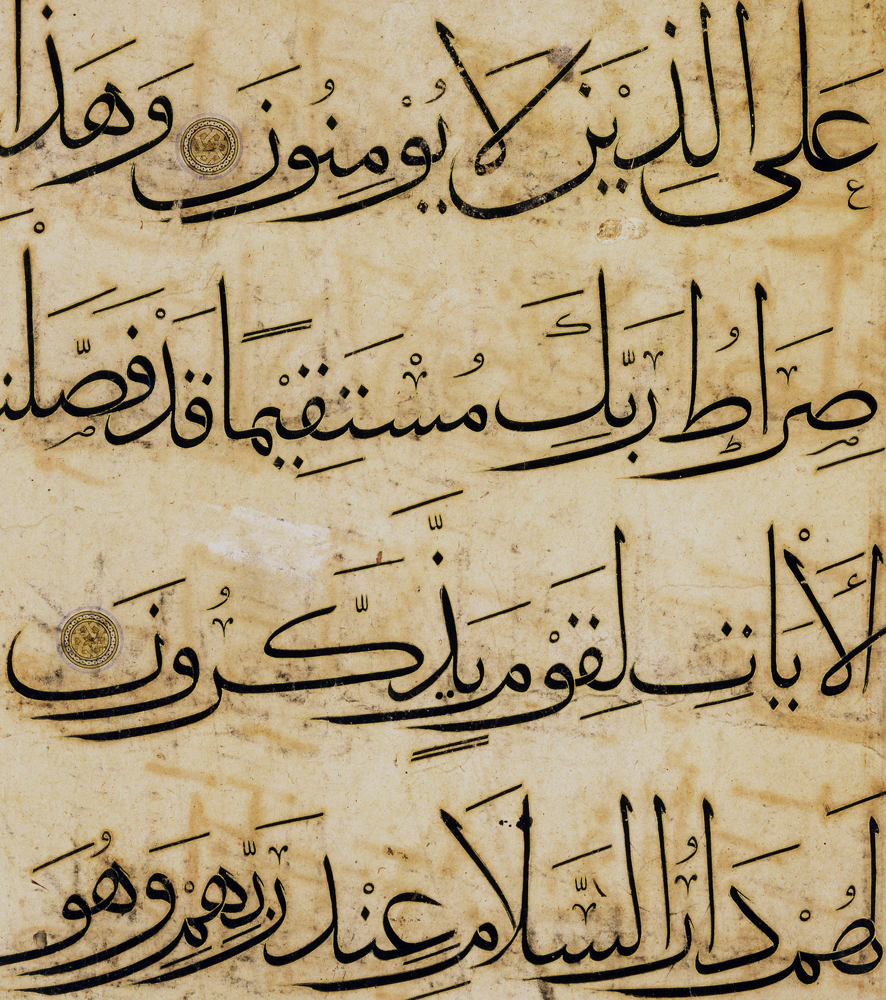 عَلَى الَّذِيْنَ لَا يُوْمِنُونَ وَهَذَا
صِرَاطُ رَبِّكَ مُسْتَقِيْمًا قَدْ فَصَّلْنَا
الْأَيَاتِ لِقَوْمٍ يَذَّكَّرُونَ
لَهُمْ دَارُ السَّلَامِ عِنْدَ رَبِّهِمْ وَهُوَ